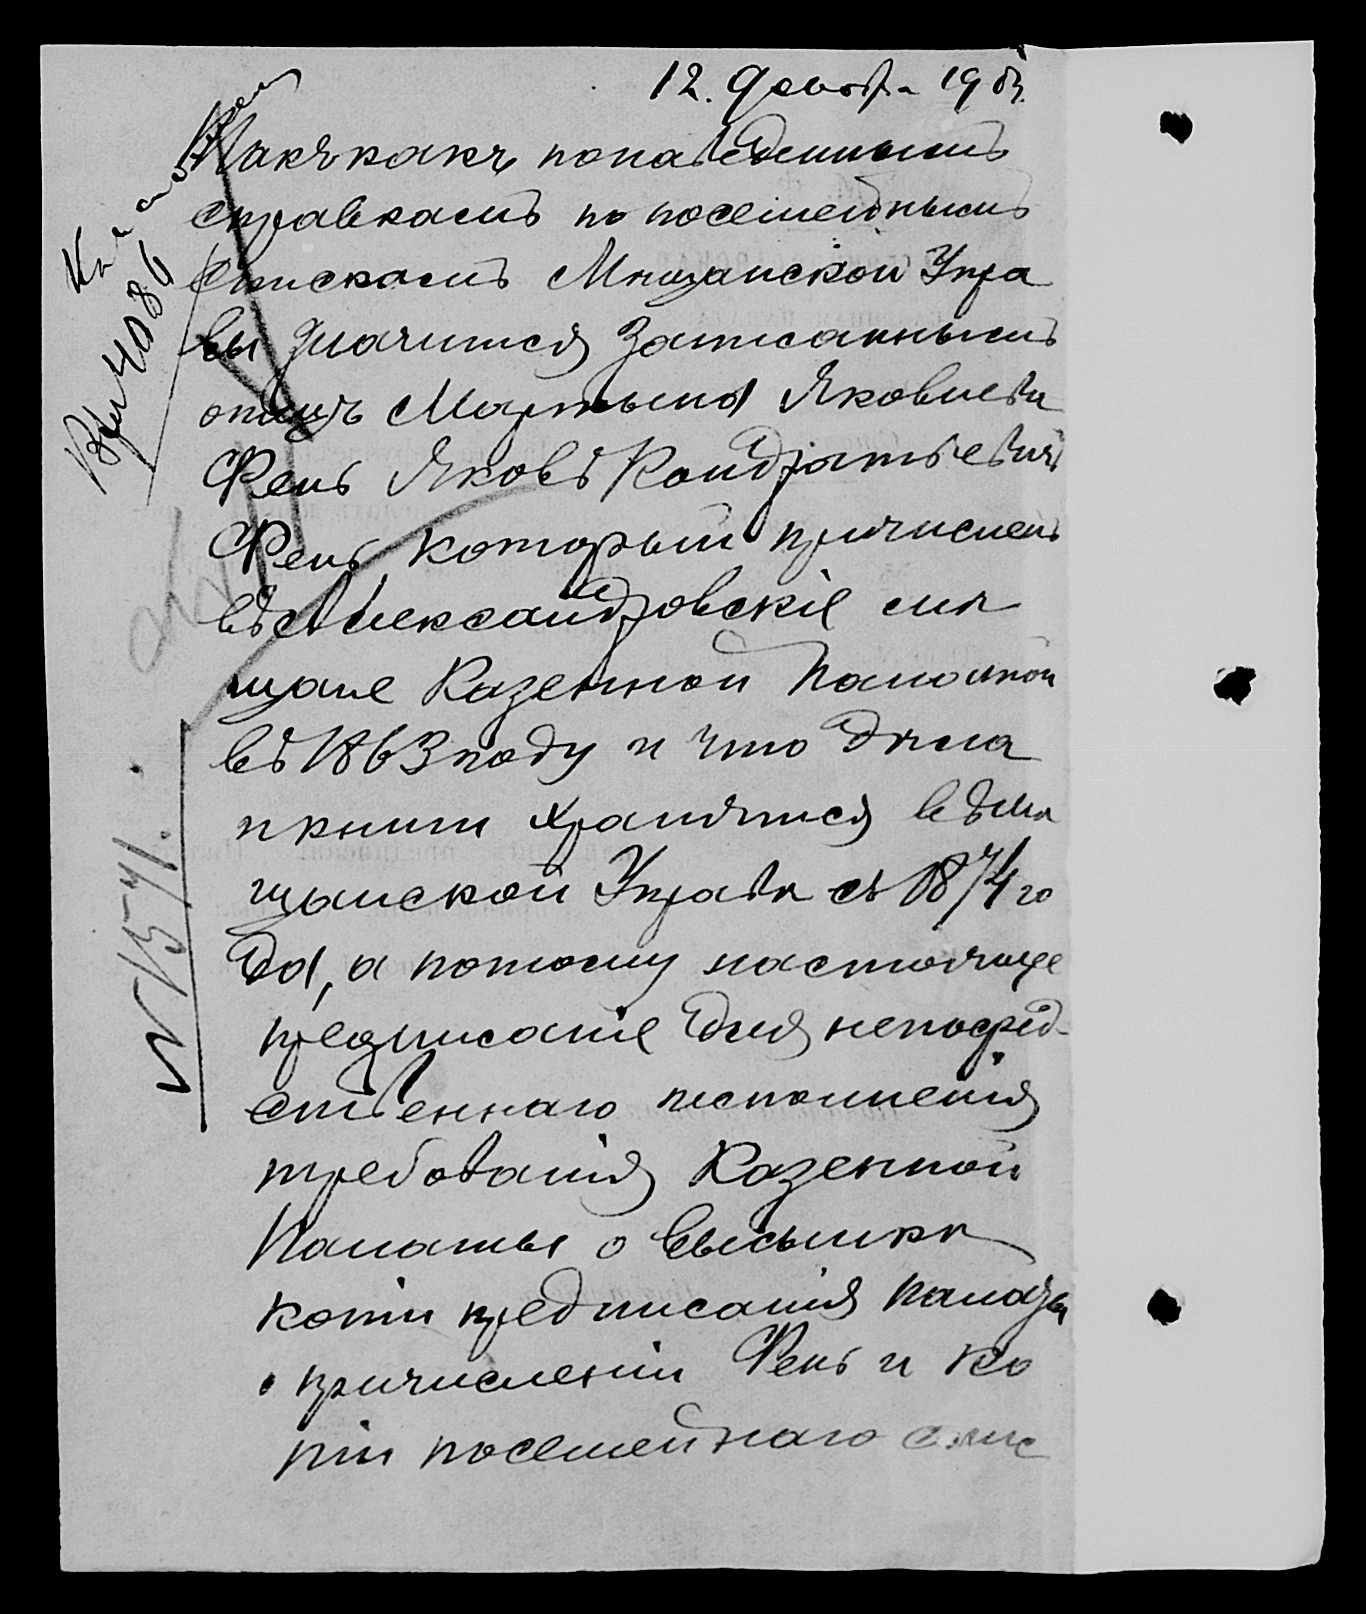 12. Декабр. 19
Такъ какъ по наведеннымъ
справкамъ по посемейнымъ
спискамъ Мѣщанской Упра
вы значится записаннымъ
отецъ Мартына Яковлева
Фень Яковъ Кондратьевичъ
Фень который причисленъ
въ Александровскіе мѣ
щане Казенной Палатой
въ 1863 году и что дѣла
и книги хранятся въ мѣ
щанской Управѣ съ 1874 го
да, а потому настоящее
предписаніе для непосред-
ственнаго исполненія
требованія Казенной
Палаты о высылкѣ
копіи предписанія Палаты
о причисленіи Фень и ко
піи посемейнаго спис
4086
№ 1571.